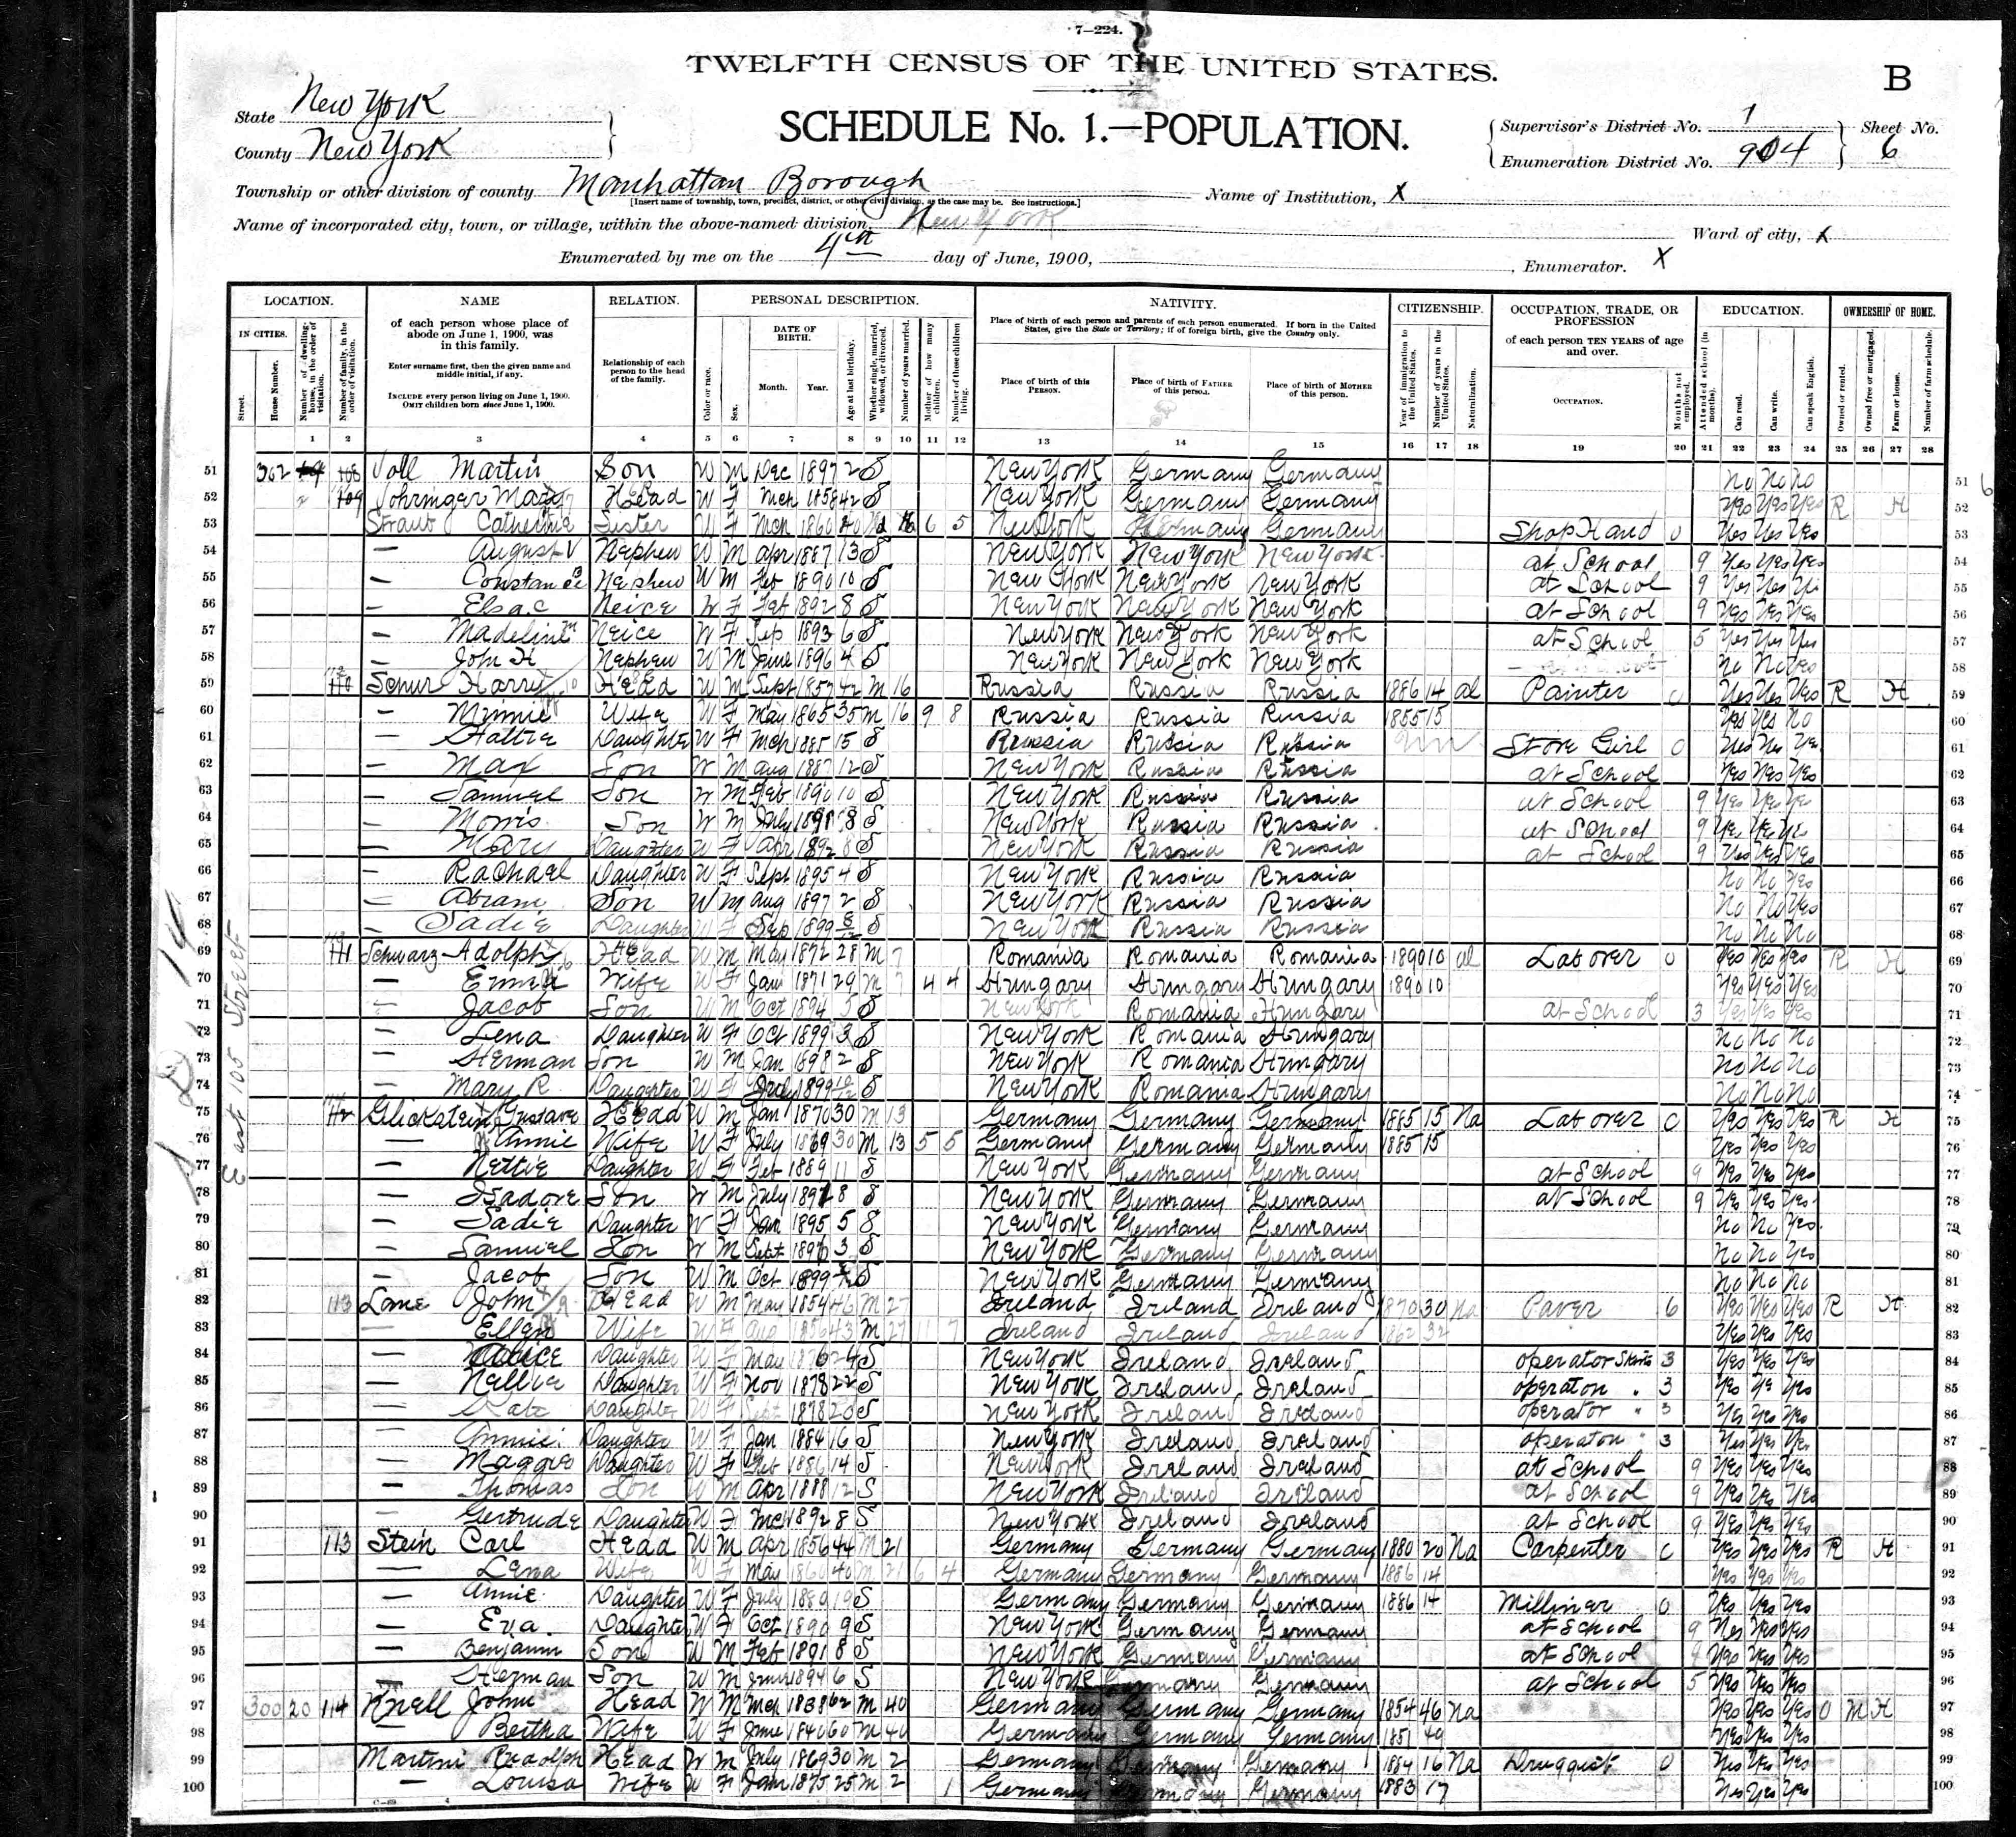 7—224.
TWELFTH CENSUS OF THE UNITED STATES.
B
State New York
SCHEDULE No. 1.—POPULATION.
Supervisor's District No. 1
Sheet No.
County New York
Enumeration District No. 904
6
Township or other division of county Manhattan Borough
Name of Institution, X
[Insert name of township, town, precinct, district, or other civil division, as the case may be. See instructions.]
Name of incorporated city, town, or village, within the above-named division, New York
Ward of city, X
Enumerated by me on the 4th day of June, 1900, , Enumerator. X
LOCATION. NAME RELATION. PERSONAL DESCRIPTION. NATIVITY. CITIZENSHIP. OCCUPATION, TRADE, OR PROFESSION EDUCATION. OWNERSHIP OF HOME.
IN CITIES.
Street.
House Number.
Number of dwelling-house, in the order of visitation.
Number of family, in the order of visitation.
of each person whose place of abode on June 1, 1900, was in this family.
Enter surname first, then the given name and middle initial, if any.
INCLUDE every person living on June 1, 1900. OMIT children born since June 1, 1900.
Relationship of each person to the head of the family.
Color or race.
Sex.
DATE OF BIRTH.
Month. Year.
Age at last birthday.
Whether single, married, widowed, or divorced.
Number of years married.
Mother of how many children.
Number of these children living.
Place of birth of each person and parents of each person enumerated. If born in the United States, give the State or Territory; if of foreign birth, give the Country only.
Place of birth of this PERSON.
Place of birth of FATHER of this person.
Place of birth of MOTHER of this person.
Year of immigration to the United States.
Number of years in the United States.
Naturalization.
of each person TEN YEARS of age and over.
OCCUPATION.
Months not employed.
Attended school (in months).
Can read.
Can write.
Can speak English.
Owned or rented.
Owned free or mortgaged.
Farm or house.
Number of farm schedule.
1 2 3 4 5 6 7 8 9 10 11 12 13 14 15 16 17 18 19 20 21 22 23 24 25 26 27 28
East 105 Street
51 302 Voll Martin Son W M Dec 1897 2 S New York Germany Germany No No No 51
52 Mary Head W F Mch 1858 42 S New York Germany Germany Yes Yes Yes R H 52
53 Straub Catherine Sister W F Mch 1860 40 Wd 16 6 5 New York Germany Germany Shop Hand 0 Yes Yes Yes 53
54 — August V Nephew W M Apr 1887 13 S New York New York New York at School 9 Yes Yes Yes 54
55 — Constance Nephew W M Feb 1890 10 S New York New York New York at School 9 Yes Yes Yes 55
56 — Elsa C Neice W F Feb 1892 8 S New York New York New York at School 9 Yes Yes Yes 56
57 — Madeline M Neice W F Sep 1893 6 S New York New York New York at School 5 Yes Yes Yes 57
58 — John H Nephew W M June 1896 4 S New York New York New York No No Yes 58
59 Schur Harry Head W M Sept 1857 42 M 16 Russia Russia Russia 1886 14 Al Painter 0 Yes Yes Yes R H 59
60 — Minnie Wife W F May 1865 35 M 16 9 8 Russia Russia Russia 1885 15 Yes Yes No 60
61 — Hattie Daughter W F Mch 1885 15 S Russia Russia Russia Store Girl 0 Yes Yes Yes 61
62 — Max Son W M Aug 1887 12 S New York Russia Russia at School Yes Yes Yes 62
63 — Samuel Son W M Feb 1890 10 S New York Russia Russia at School 9 Yes Yes Yes 63
64 — Morris Son W M July 1891 8 S New York Russia Russia at School 9 Yes Yes Yes 64
65 — Mary Daughter W F Apr 1892 8 S New York Russia Russia at School 9 Yes Yes Yes 65
66 — Rachael Daughter W F Sept 1895 4 S New York Russia Russia No No Yes 66
67 — Abram Son W M Aug 1897 2 S New York Russia Russia No No Yes 67
68 — Sadie Daughter W F Sep 1899 8/12 S New York Russia Russia No No No 68
69 111 Schwarz Adolph Head W M May 1872 28 M 7 Romania Romania Romania 1890 10 Al Laborer 0 Yes Yes Yes R H 69
70 — Emma Wife W F Jan 1871 29 M 7 4 4 Hungary Hungary Hungary 1890 10 Yes Yes Yes 70
71 — Jacob Son W M Oct 1894 5 S New York Romania Hungary at School 3 Yes Yes Yes 71
72 — Lena Daughter W F Oct 1899 3 S New York Romania Hungary No No No 72
73 — Herman Son W M Jan 1898 2 S New York Romania Hungary No No No 73
74 — Mary R Daughter W F July 1899 10/12 S New York Romania Hungary No No No 74
75 112 Glickstein Gustave Head W M Jan 1870 30 M 13 Germany Germany Germany 1885 15 Na Laborer 0 Yes Yes Yes R H 75
76 — Annie Wife W F July 1869 30 M 13 5 5 Germany Germany Germany 1885 15 Yes Yes Yes 76
77 — Nettie Daughter W F Feb 1889 11 S New York Germany Germany at School 9 Yes Yes Yes 77
78 — Isadore Son W M July 1891 8 S New York Germany Germany at School 9 Yes Yes Yes 78
79 — Sadie Daughter W F Jan 1895 5 S New York Germany Germany No No Yes 79
80 — Samuel Son W M Sept 1896 3 S New York Germany Germany No No Yes 80
81 — Jacob Son W M Oct 1899 S New York Germany Germany No No No 81
82 113 Lane John Head W M May 1854 46 M 27 Ireland Ireland Ireland 1870 30 Na Paver 6 Yes Yes Yes R H 82
83 — Ellen Wife W F Aug 1856 43 M 27 11 7 Ireland Ireland Ireland 32 Yes Yes Yes 83
84 — Alice Daughter W F May 1876 24 S New York Ireland Ireland operator Skirts 3 Yes Yes Yes 84
85 — Nellie Daughter W F Nov 1878 22 S New York Ireland Ireland operator " 3 Yes Yes Yes 85
86 — Kate Daughter W F Sept 1878 20 S New York Ireland Ireland operator " 3 Yes Yes Yes 86
87 — Annie Daughter W F Jan 1884 16 S New York Ireland Ireland operator " 3 Yes Yes Yes 87
88 — Maggie Daughter W F Feb 1886 14 S New York Ireland Ireland at School 9 Yes Yes Yes 88
89 — Thomas Son W M Apr 1888 12 S New York Ireland Ireland at School 9 Yes Yes Yes 89
90 — Gertrude Daughter W F Mch 1892 8 S New York Ireland Ireland at School 9 Yes Yes Yes 90
91 113 Stein Carl Head W M Apr 1856 44 M 21 Germany Germany Germany 1880 20 Na Carpenter 0 Yes Yes Yes R H 91
92 — Lena Wife W F May 1860 40 M 21 6 4 Germany Germany Germany 1886 14 Yes Yes Yes 92
93 — Annie Daughter W F July 1880 19 S Germany Germany Germany 1886 14 Milliner 0 Yes Yes Yes 93
94 — Eva Daughter W F Oct 1890 9 S New York Germany Germany at School 9 Yes Yes Yes 94
95 — Benjamin Son W M Feb 1891 8 S New York Germany Germany at School 9 Yes Yes Yes 95
96 — Herman Son W M June 1894 6 S New York Germany Germany at School 5 Yes Yes Yes 96
97 300 20 114 Knell John Head W M Mch 1838 62 M 40 Germany Germany Germany 1854 46 Na Yes Yes Yes O M H 97
98 — Bertha Wife W F June 1840 60 M 40 Germany Germany Germany 1851 49 Yes Yes Yes 98
99 Martini Rudolph Head W M July 1869 30 M 2 Germany Germany Germany 1884 16 Na Druggist 0 Yes Yes Yes 99
100 — Louisa Wife W F Jan 1875 25 M 2 1 Germany Germany Germany 1883 17 Yes Yes Yes 100